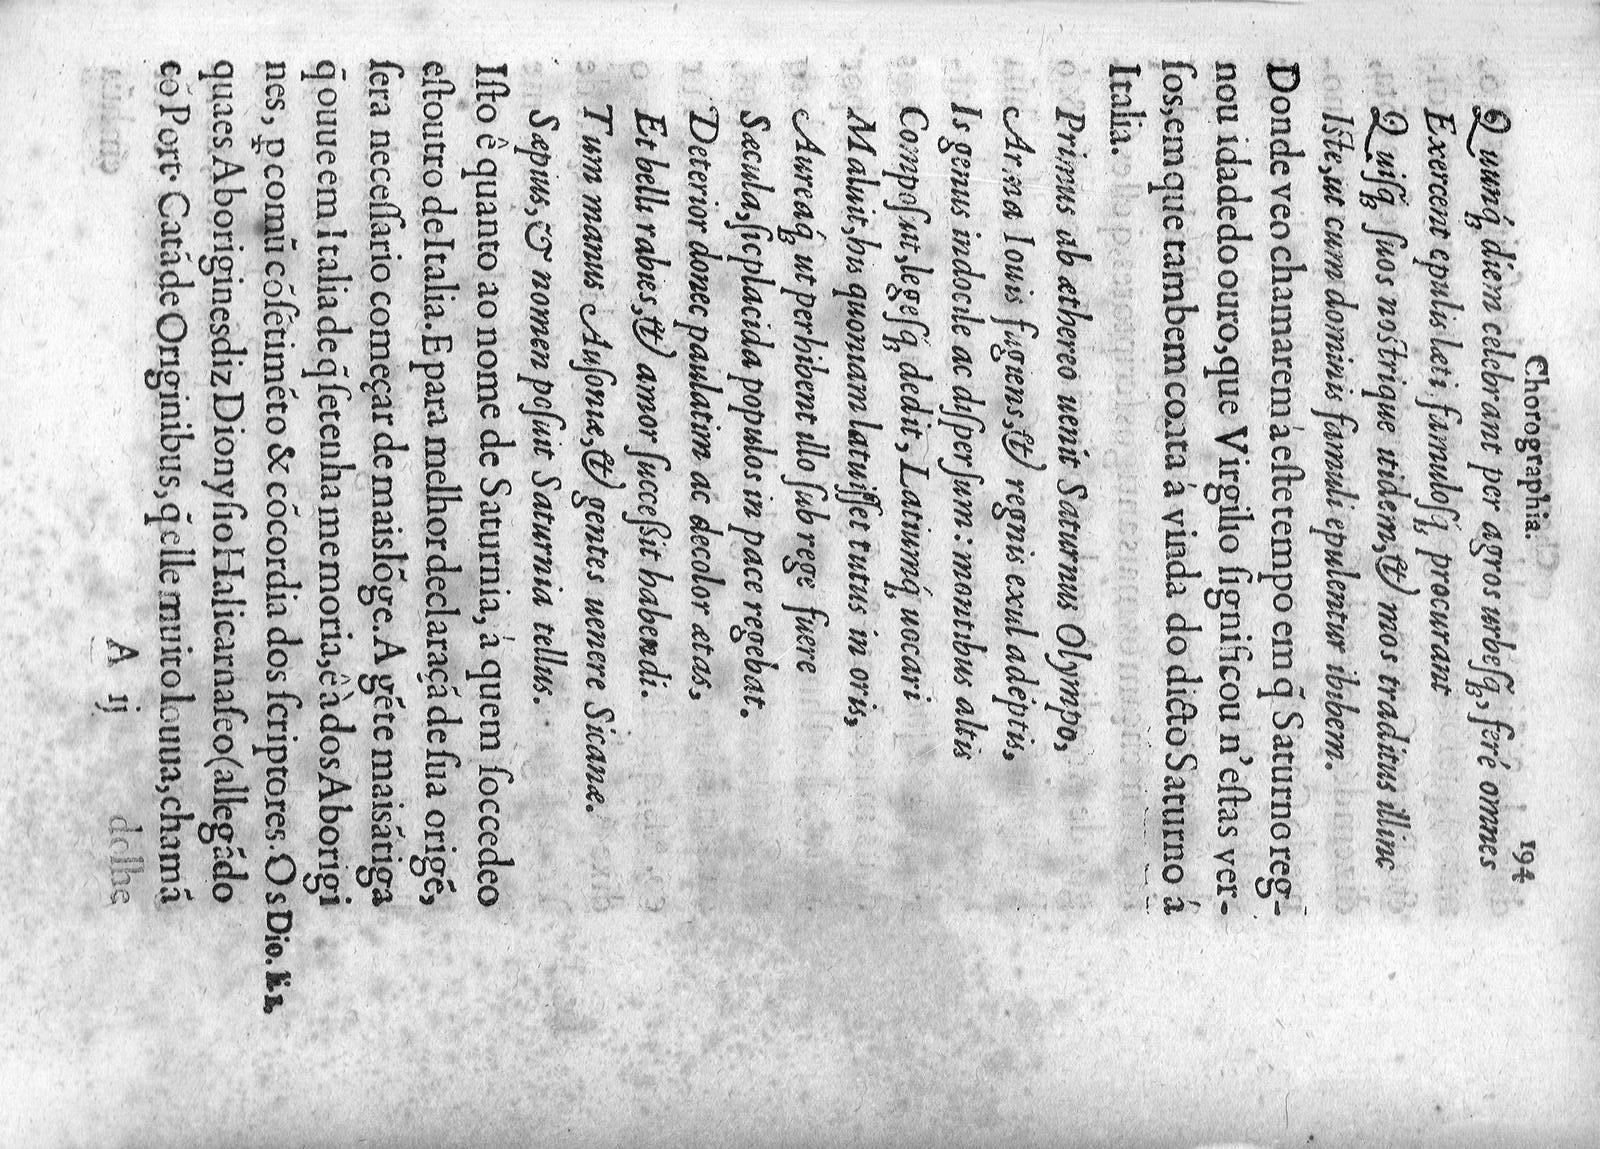 Chorographia. 194
Quunq́ꝫ diem celebrant per agros urbeſq́ꝫ, ferè omnes
Exercent epulis læti: famuloſq́ꝫ procurant
Quiſq́ꝫ ſuos noſtrique itidem, & mos traditus illinc
Iſte, ut cum dominis famuli epulentur ibidem.
Donde veo chamarem á eſte tempo em q̃ Saturno reg-
nou idade do ouro, que Virgilio ſignificou n'eſtas ver-
ſos, em que tambem conta á vinda do dicto Saturno á
Italia.
Primus ab æthereo uenit Saturnus Olympo,
Arma Iouis fugiens, & regnis exul adeptis,
Is genus indocile ac diſperſum: montibus altis
Compoſuit, legeſq́ꝫ dedit, Latiumq́ꝫ uocari
Maluit, his quoniam latuiſſet tutus in oris,
Aureaq́ꝫ ut perhibent illo ſub rege fuere
Sæcula, ſic placida populos in pace regebat.
Deterior donec paulatim ac decolor ætas,
Et belli rabies, & amor ſucceſsit habendi.
Tum manus Auſoniæ, & gentes uenere Sicanæ.
Sæpius, & nomen poſuit Saturnia tellus.
Iſto ê quanto ao nome de Saturnia, á quem ſoccedeo
eſtoutro de Italia. E para melhor declaraçã de ſua origẽ,
ſera neceſſario começar de mais lõge. A gẽte mais ãtiga
q̃ ouue em Italia de q̃ ſe tenha memoria, ê à dos Aborigi
nes, ꝑ comũ cõſẽtimẽto & cõcordia dos ſcriptores. Os Dio. li. 1.
quaes Aborigines diz Dionyſio Halicarnaſeo (allegãdo
cõ Port. Catã de Originibus, q̃ elle muito louua, chamã
A ij delhe